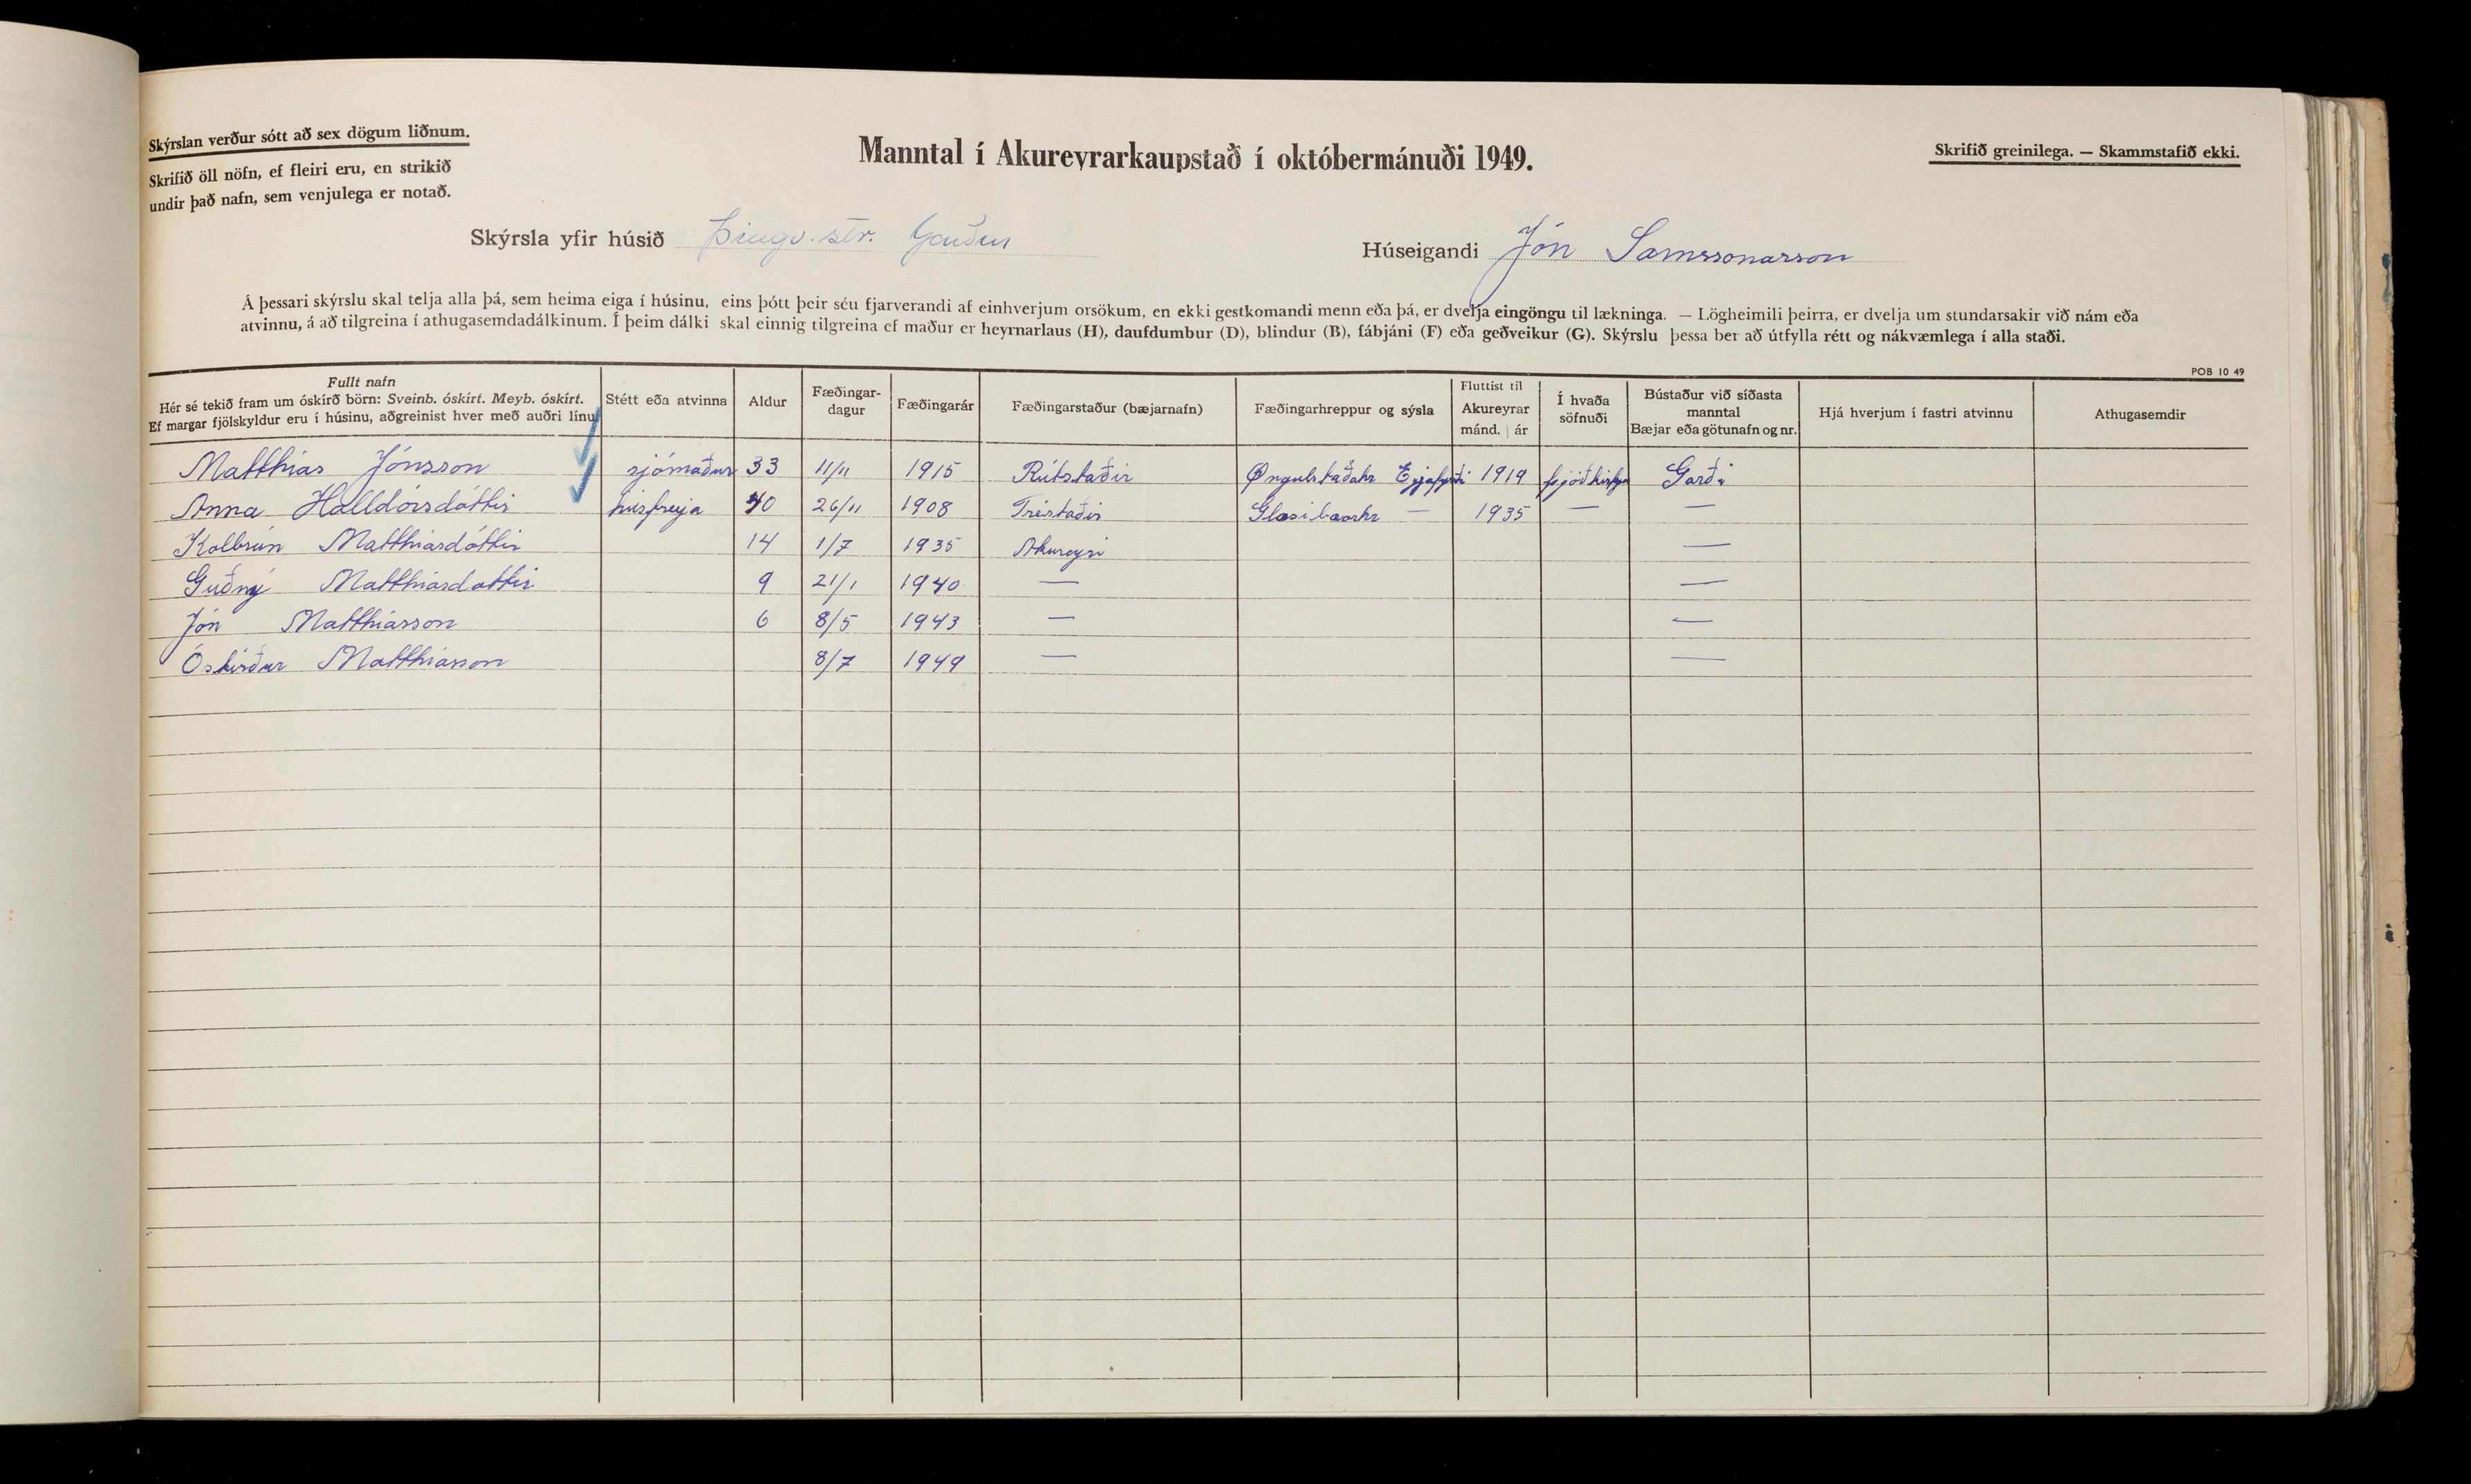 Skýrslan verður sótt að sex dögum liðnum.
Skrifið öll nöfn, ef fleiri eru, en strikið
undir það nafn, sem venjulega er notað.
Manntal í Akureyrarkaupstað í októbermánuði 1949.
Skrifið greinilega. — Skammstafið ekki.
Skýrsla yfir húsið Þingv.str. Garður
Húseigandi Jón Samssonarson
Á þessari skýrslu skal telja alla þá, sem heima eiga í húsinu, eins þótt þeir séu fjarverandi af einhverjum orsökum, en ekki gestkomandi menn eða þá, er dvelja eingöngu til lækninga. — Lögheimili þeirra, er dvelja um stundarsakir við nám eða
atvinnu, á að tilgreina í athugasemdadálkinum. Í þeim dálki skal einnig tilgreina ef maður er heyrnarlaus (H), daufdumbur (D), blindur (B), fábjáni (F) eða geðveikur (G). Skýrslu þessa ber að útfylla rétt og nákvæmlega í alla staði.
POB 10 49
Fullt nafn
Hér sé tekið fram um óskírð börn: Sveinb. óskírt. Meyb. óskírt.
Ef margar fjölskyldur eru í húsinu, aðgreinist hver með auðri línu
Stétt eða atvinna
Aldur
Fæðingar-
dagur
Fæðingarár
Fæðingarstaður (bæjarnafn)
Fæðingarhreppur og sýsla
Fluttist til
Akureyrar
mánd. | ár
Í hvaða
söfnuði
Bústaður við síðasta
manntal
Bæjar eða götunafn og nr.
Hjá hverjum í fastri atvinnu
Athugasemdir
Matthías Jónsson sjómaður 33 11/11 1915 Rútstaðir Öngulstaðahr Eyjafirði 1919 þjóðkirkja Garði
Anna Halldórsdóttir húsfreyja 40 26/11 1908 Tréstaðir Glæsibæarhr — 1935 — —
Kolbrún Matthíasdóttir 14 1/7 1935 Akureyri —
Guðný Matthíasdóttir 9 21/1 1940 — —
Jón Matthíasson 6 8/5 1943 — —
Óskírður Matthíasson 8/7 1949 — —